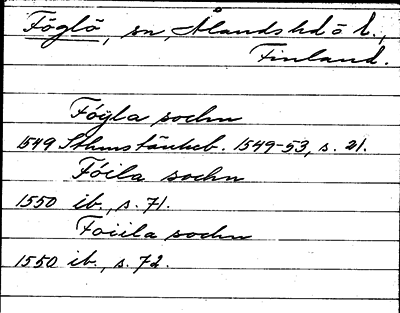 Föglö, sn, Ålands hd ö l.,
Finland.
Föÿla sochn
1549 Sthms tänkeb. 1549-53, s. 21.
Föila sochn
1550 ib., s. 71.
Foiila sochn
1550 ib., s. 72.